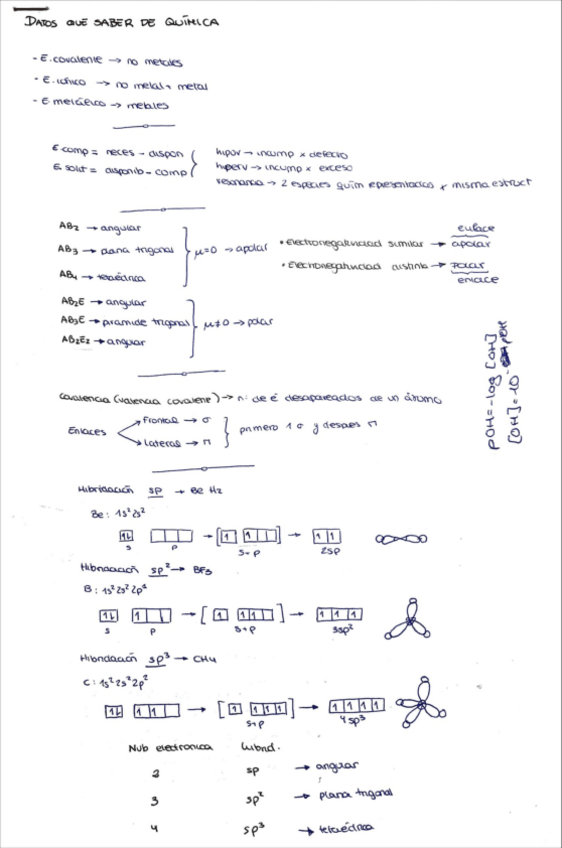 DATOS QUE SABER DE QUÍMICA
- E. covalente → no metales
- E. iónico → no metal + metal
- E metálico → metales
E comp = neces - dispon
E solit = disponib - comp
hipov → incump x defecto
hiperv → incump x exceso
resonancia → 2 especies quím representados x misma estruct
AB2 → angular
AB3 → plana trigonal
AB4 → tetraédrica
μ=0 → apolar
• electronegatividad similar → enlace apolar
• electronegatividad distinta → polar enlace
AB2E → angular
AB3E → piramide trigonal
AB2E2 → angular
μ≠0 → polar
POH = -log [OH]
[OH] = 10^-POH
covalencia (valencia covalente) → nº de é desapareados de un átomo
Enlaces
Frontal → σ
Lateral → π
primero 1 σ y despues π
Hibridación sp → Be H2
Be: 1s² 2s²
s p s+p 2sp
Hibridación sp² → BF3
B: 1s² 2s² 2p¹
s p s+p 3sp²
Hibridación sp³ → CH4
C: 1s² 2s² 2p²
s+p 4sp³
Nub electronica hibrid.
2 sp → angular
3 sp² → plana trigonal
4 sp³ → tetraédrica